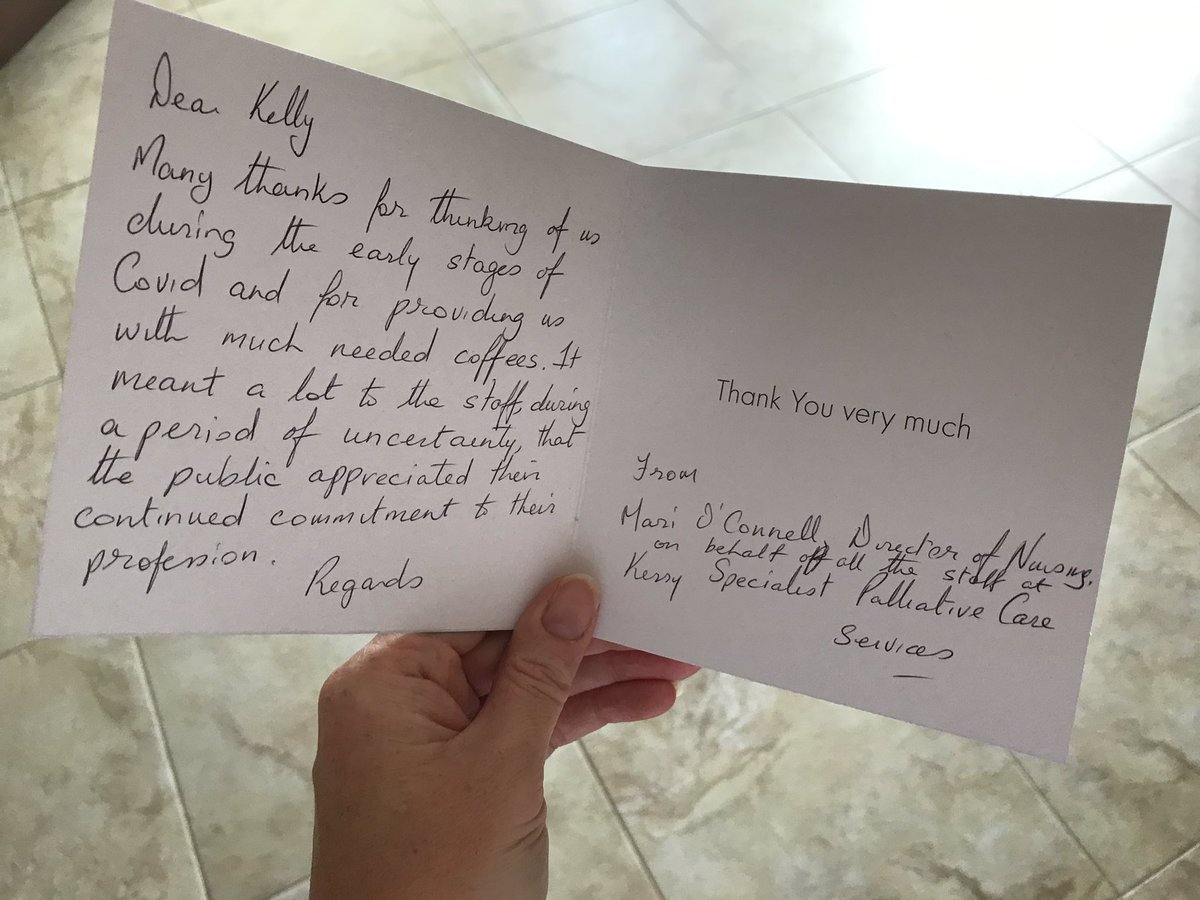 Dear Kelly
Many thanks for thinking of us
during the early stages of
Covid and for providing us
with much needed coffees. It
meant a lot to the staff, during
a period of uncertainty, that
the public appreciated their
continued commitment to their
profession.
Regards
Thank You very much
From
Mari O'Connell, Director of Nursing.
on behalf of all the staff at
Kerry Specialist Palliative Care
Services